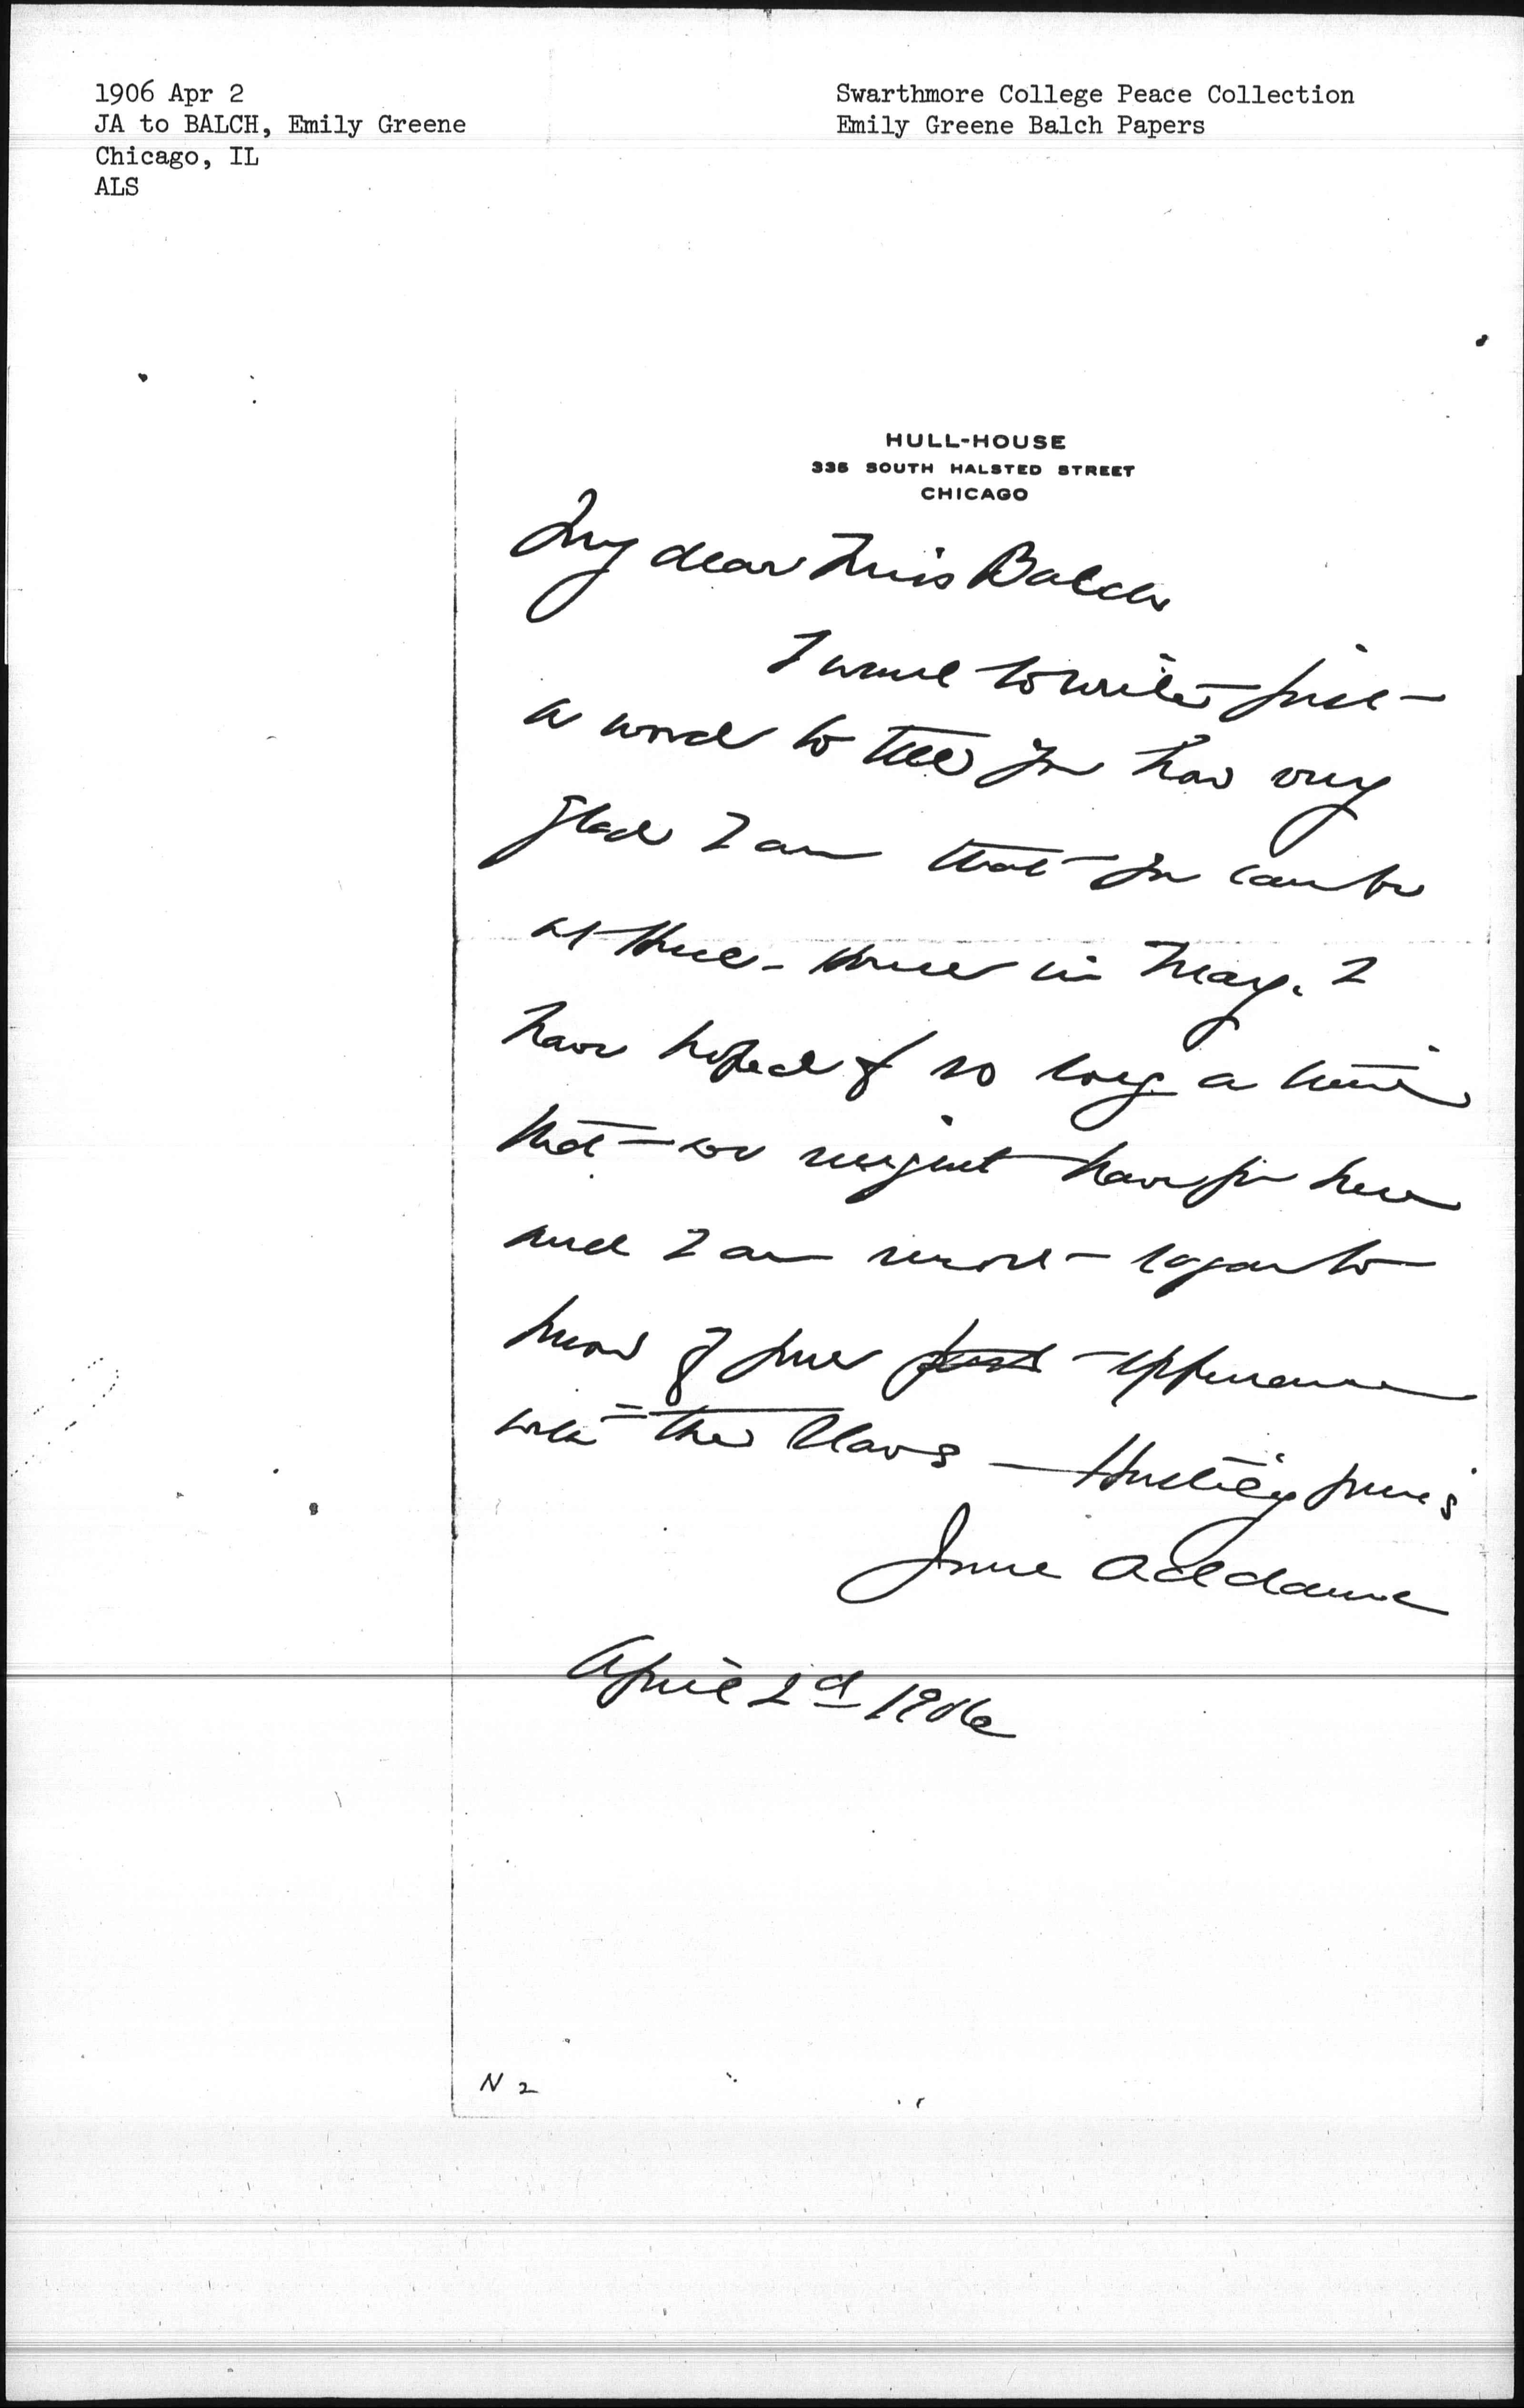 1906 Apr 2
JA to BALCH, Emily Greene
Chicago, IL
ALS
Swarthmore College Peace Collection
Emily Greene Balch Papers
HULL-HOUSE
335 SOUTH HALSTED STREET
CHICAGO
My dear Miss Balch
I want to write just
a word to tell you how very
glad I am that you can be
at Hull-House in May. I
have hoped for so long a time
that we might have you here
and I am most eager to
know of your experience
with the Slavs — Hastily yours
Jane Addams
April 2d 1906
N 2